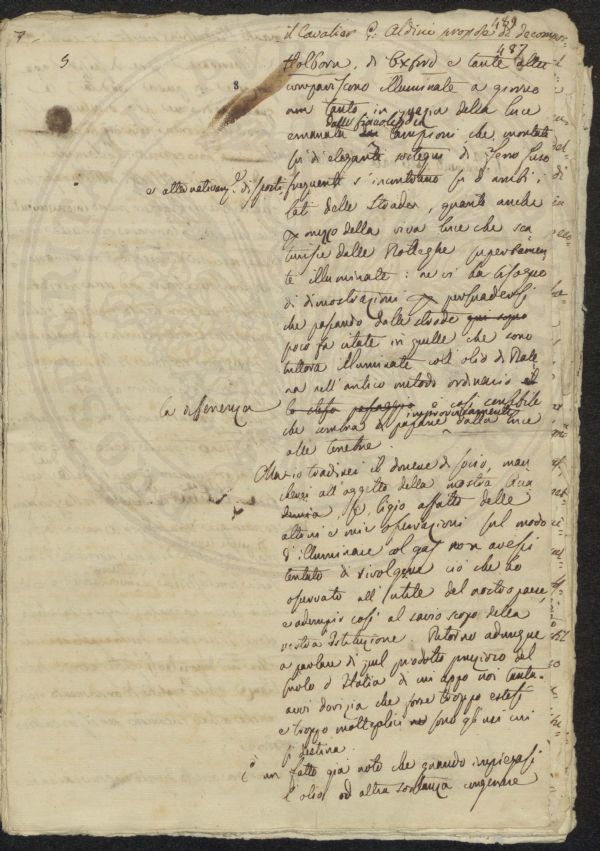 7.
489
il Cavalier G. Aldini propose di decompor
487
5
Holborn, di Oxford e tante altre
8
compariscono illuminate a giorno
non tanto in grazia della luce
dalle fiaccole dei
emanata dai lampioni, che montati
su di eleganti sostegni di ferro fuso
e alternativam.e disposti frequenti s'incontrano su d'ambi i
lati delle Strade, quanto anche
per mezzo della viva luce che sca
turisce dalle Botteghe superbamen
te illuminate: ne vi ha bisogno
di dimostrazioni per persuadersi
che passando dalle strade qui sopra
poco fa citate in quelle che sono
tuttora illuminate coll'olio di Bale
na nell'antico metodo ordinario il
la differenza
lo stesso passaggio è così sensibile
improvvisamente
che sembra di passare dalla luce
alle tenebre.
Ma io tradirei il dovere di socio, man
cherei all'oggetto della nostra Acca
demia, se ligio affatto delle
altrui e mie osservazioni sul modo
d'illuminare col gas non avessi
tentato di rivolgere ciò che ho
osservato all'utile del nostro paese,
e adempio così al savio scopo della
vostra Istituzione. Ritorno adunque
a parlare di quel prodotto prezioso del
suolo d'Italia di cui appo noi tanta
avvi dovizia che forse troppo estesi
e troppo molteplici sono gli usi cui
si destina.
È un fatto già noto che quando impiegasi
l'olio od altra sostanza congenere